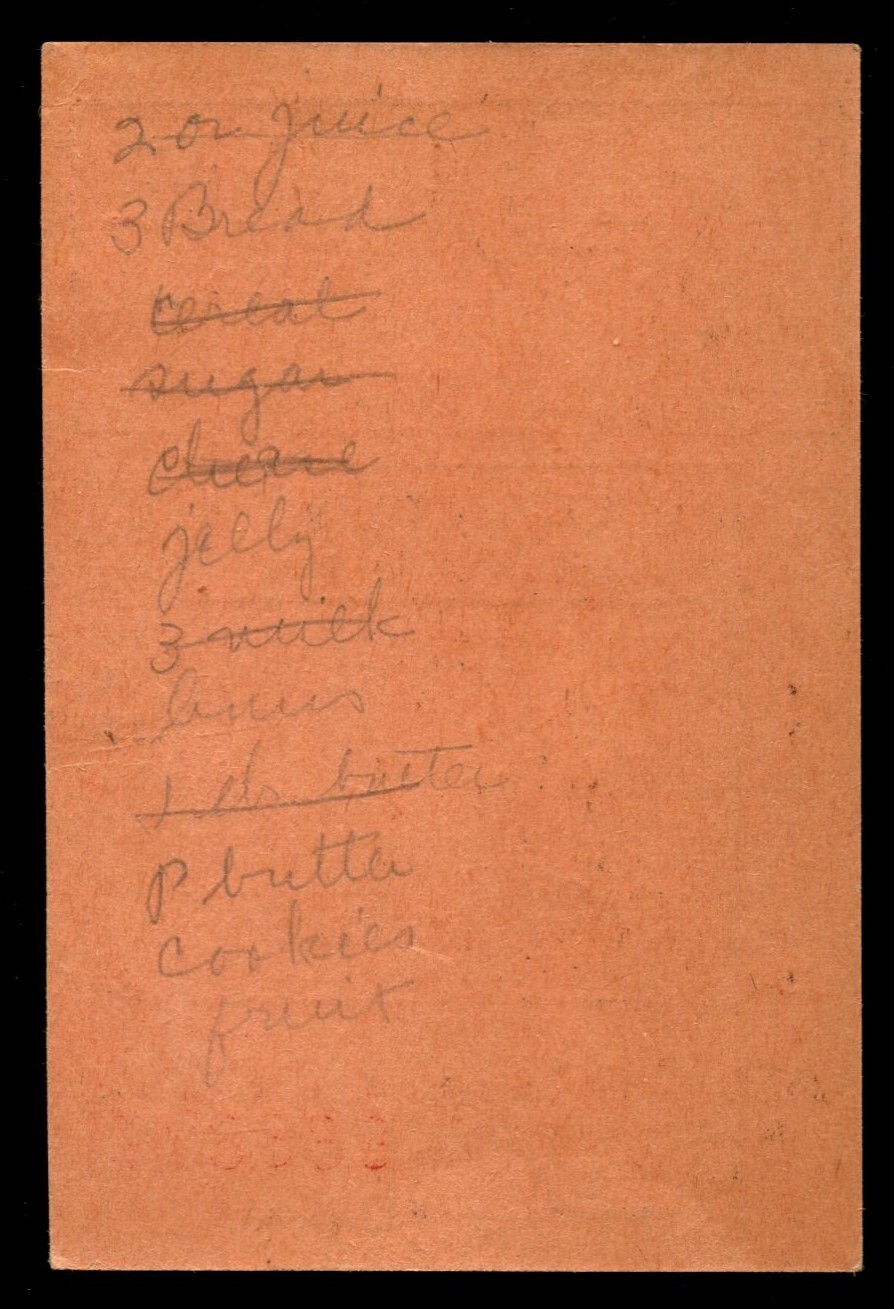 2 or juice
3 Bread
cereal
sugar
cheese
jelly
3 milk
buns
1 lb. butter
P butter
cookies
fruit